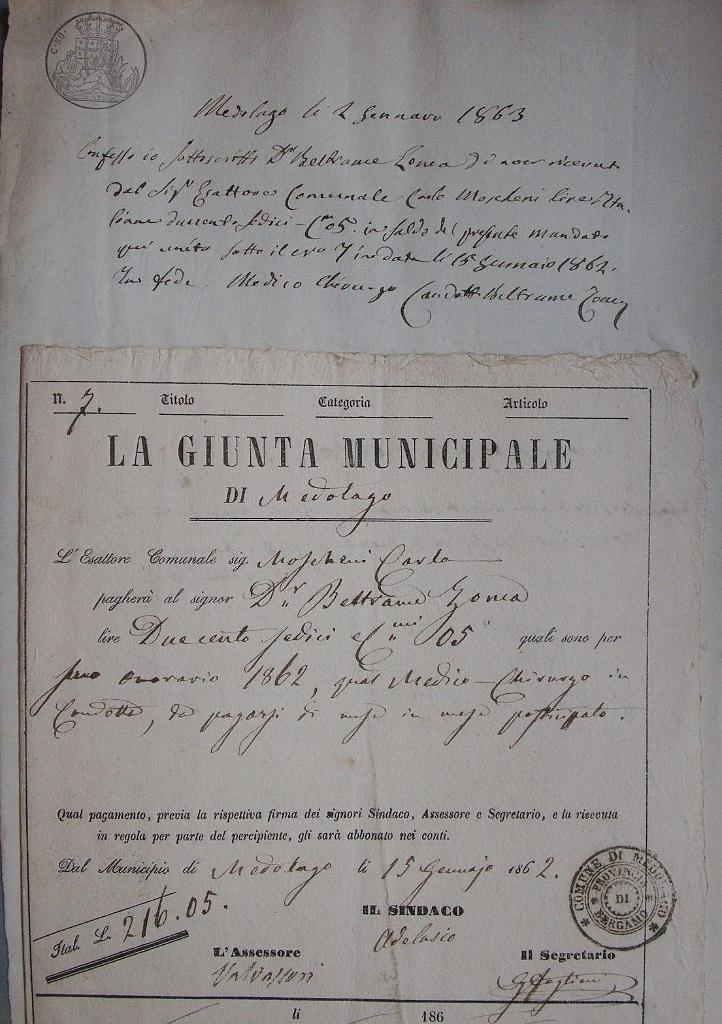 C. 50.
Medolago li 2 Gennaro 1863
Confesso io sottoscritto Dr. Beltrame Zonca di aver ricevuto
dal Sigr. Esattore Comunale Carlo Moscheni lire Ita-
liane duecento sedici - Cmi 05. in saldo del presente mandato
qui unito sotto il Nro 7 in data li 15 Gennaio 1862.
In fede. Medico Chirurgo Condotto Beltrame Zonca
N. 7. Titolo Categoria Articolo
LA GIUNTA MUNICIPALE
DI Medolago
L'Esattore Comunale sig. Moscheni Carlo
pagherà al signor Dr. Beltrame Zonca
lire Duecento sedici e Cmi 05 quali sono per
suo onorario 1862, qual Medico-Chirurgo in
Condotta, da pagarsi di mese in mese postcipato.
Qual pagamento, previa la rispettiva firma dei signori Sindaco, Assessore e Segretario, e la ricevuta
in regola per parte del percipiente, gli sarà abbonato nei conti.
Dal Municipio di Medolago li 15 Gennajo 1862.
Ital. L. 216.05.
IL SINDACO
Adelasio
L'Assessore
Valvassori
Il Segretario
COMUNE DI MEDOLAGO
PROVINCIA
DI
BERGAMO
li 186